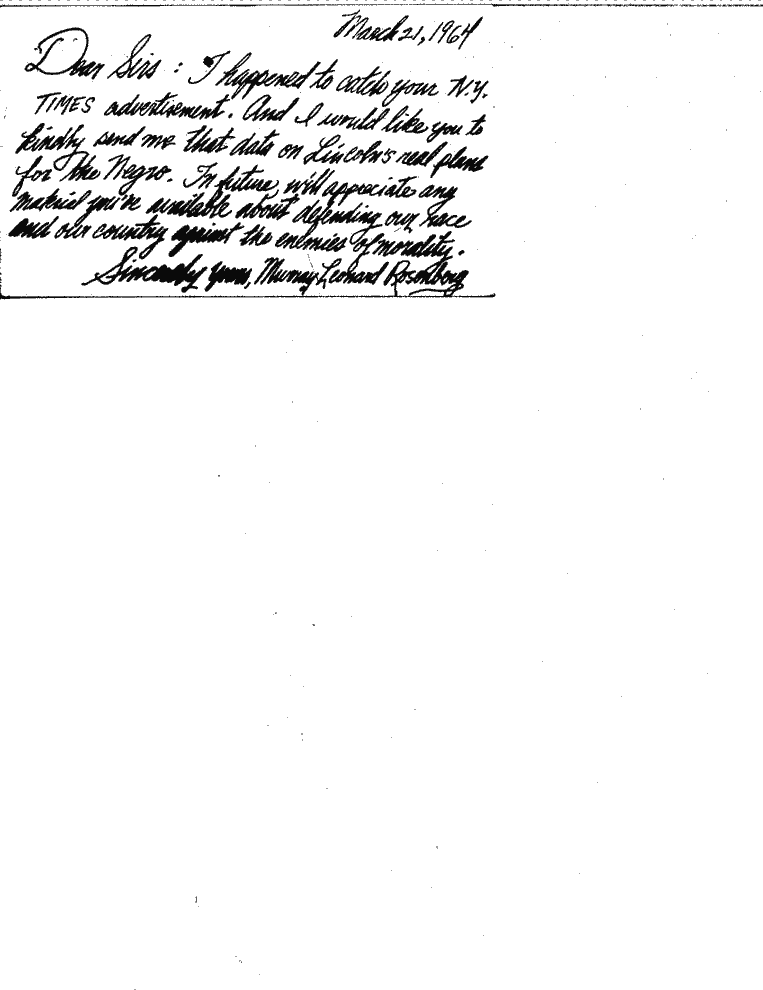 March 21, 1964
Dear Sirs : I happened to catch your N.Y.
TIMES advertisement. And I would like you to
kindly send me that data on Lincoln's real plans
for the Negro. In future, will appreciate any
material you've available about defending our race
and our country against the enemies of morality.
Sincerely yours, Murray Leonard Rosenberg